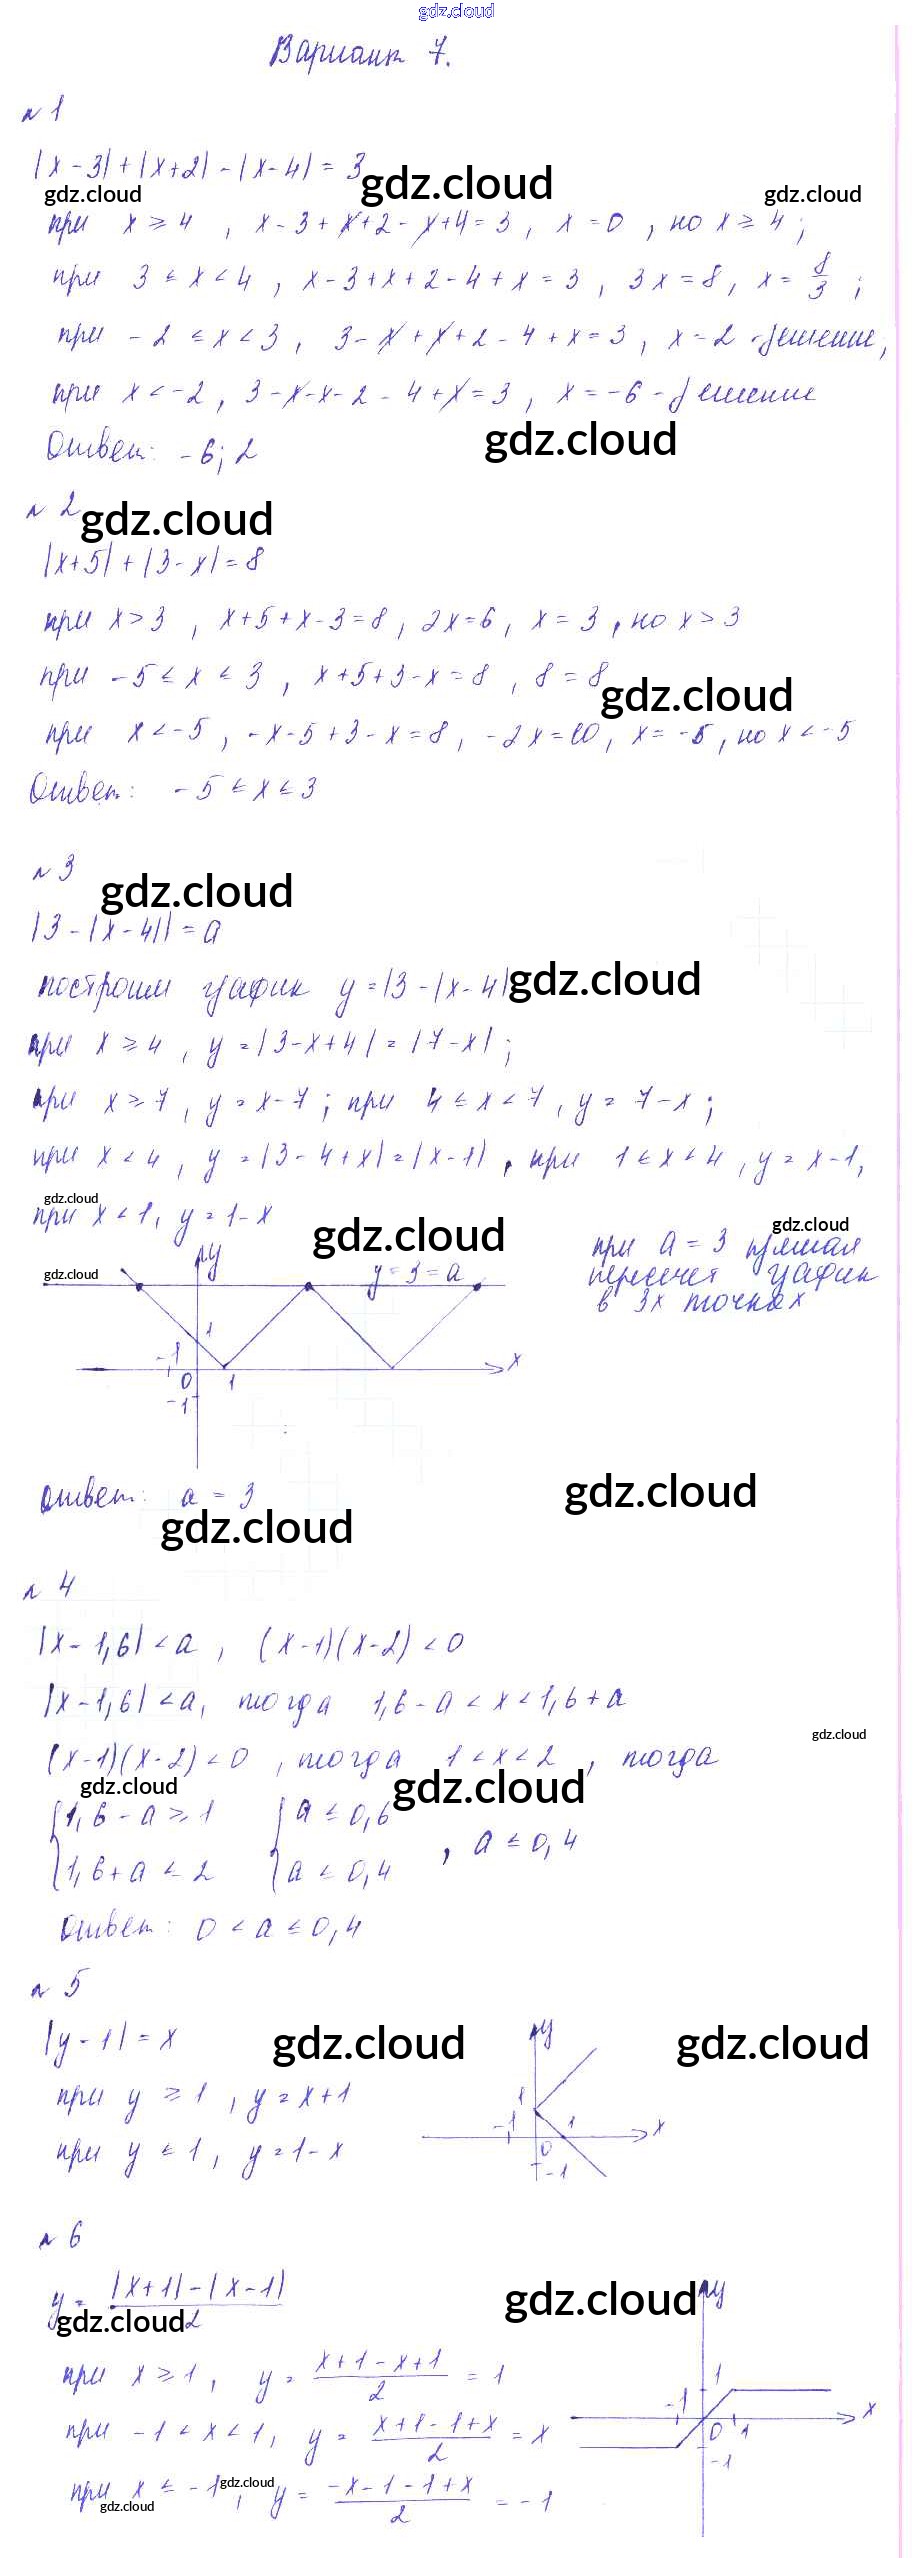 gdz.cloud
Вариант 7.
№1
|x-3|+|x+2|-|x-4|=3
gdz.cloud gdz.cloud gdz.cloud
при x ≥ 4, x-3+x+2-x+4=3, x=0, но x ≥ 4;
при 3 ≤ x < 4, x-3+x+2-4+x=3, 3x=8, x=8/3;
при -2 ≤ x < 3, 3-x+x+2-4+x=3, x=2 -решение;
при x < -2, 3-x-x-2-4+x=3, x=-6 -решение
Ответ: -6; 2
gdz.cloud
№2
gdz.cloud
|x+5|+|3-x|=8
при x>3, x+5+x-3=8, 2x=6, x=3, но x>3
при -5 ≤ x ≤ 3, x+5+3-x=8, 8=8
gdz.cloud
при x<-5, -x-5+3-x=8, -2x=10, x=-5, но x<-5
Ответ: -5 ≤ x ≤ 3
№3
gdz.cloud
|3-|x-4||=a
построим график y=|3-|x-4|
gdz.cloud
при x ≥ 4, y=|3-x+4|=|7-x|;
при x ≥ 7, y=x-7; при 4 ≤ x < 7, y=7-x;
при x<4, y=|3-4+x|=|x-1|, при 1 ≤ x < 4, y=x-1,
gdz.cloud
при x<1, y=1-x
gdz.cloud gdz.cloud
при a=3 прямая
пересечёт график
в 3х точках
gdz.cloud
y y=3=a
1
-1 0 1 x
-1
Ответ: a=3
gdz.cloud
gdz.cloud
№4
|x-1,6|<a, (x-1)(x-2)<0
|x-1,6|<a, тогда 1,6-a<x<1,6+a
gdz.cloud
(x-1)(x-2)<0, тогда 1<x<2, тогда
gdz.cloud gdz.cloud
{1,6-a ≥ 1 {a ≤ 0,6
{1,6+a ≤ 2 {a ≤ 0,4 , a ≤ 0,4
Ответ: 0<a ≤ 0,4
№5
|y-1|=x
gdz.cloud gdz.cloud
при y ≥ 1, y=x+1
при y ≤ 1, y=1-x
y
1
-1 0 1 x
-1
№6
y=(|x+1|-|x-1|)/2
gdz.cloud gdz.cloud
при x ≥ 1, y=(x+1-x+1)/2=1
при -1<x<1, y=(x+1-1+x)/2=x
при x ≤ -1, y=(-x-1-1+x)/2=-1
gdz.cloud
gdz.cloud
y
1
-1 0 1 x
-1